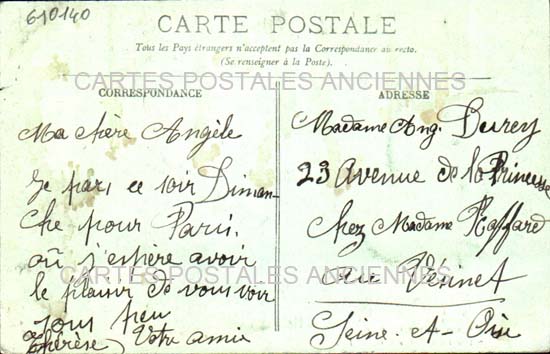 610140
CARTE POSTALE
Tous les Pays étrangers n'acceptent pas la Correspondance au recto.
(Se renseigner à la Poste).
CARTES POSTALES ANCIENNES
CORRESPONDANCE
Ma chère Angèle
Je pars ce soir Diman-
che pour Paris.
où j'espère avoir
le plaisir de vous voir
sous peu
Votre amie
Thérèse
ADRESSE
Madame Ang. Durey
23 Avenue de la Princesse
chez Madame Raffard
au Vésinet
Seine-et-Oise
CARTES POSTALES ANCIENNES